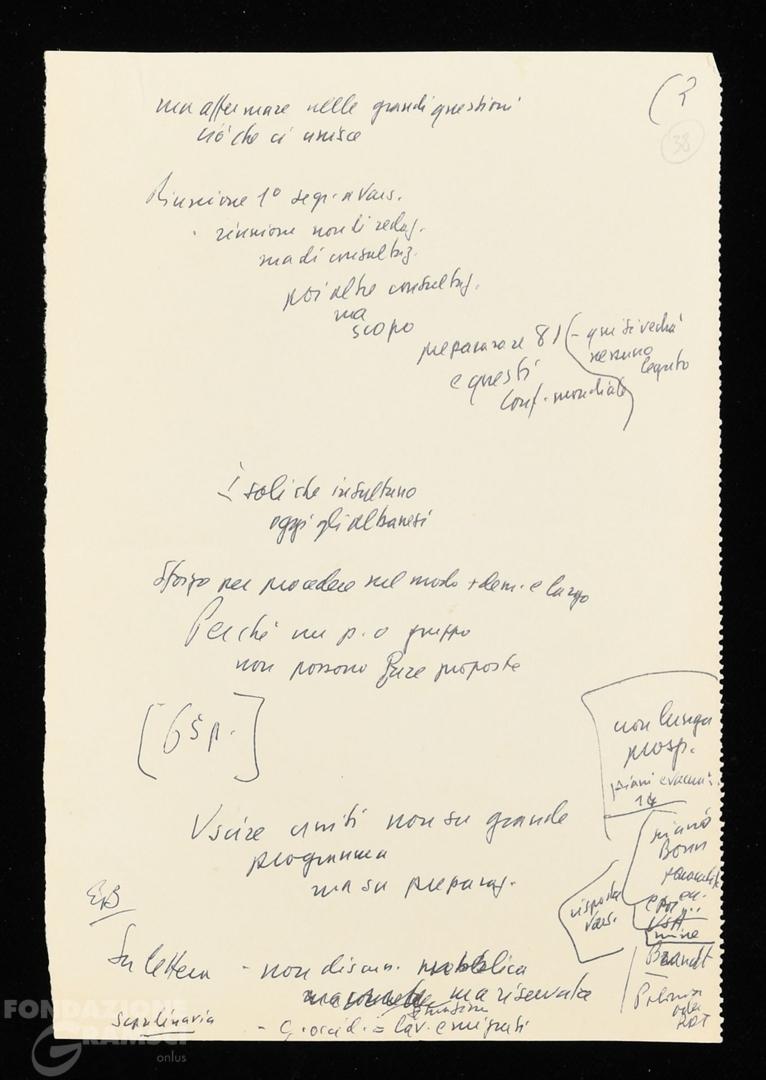 (2
38
ma affermare nelle grandi questioni
ciò che ci unisce
Riunione 1° segr. a Vars.
riunione non di redaz.
ma di consultaz.
poi altre consultaz.
ma
scopo
preparare 81 (- qui si vedrà
nessuno
legato
e questi
conf. mondiale
I soli che insultano
oggi gli albanesi
Sforzo per procedere nel modo + dem. e largo
Perché un p. o gruppo
non possono fare proposte
[6 sp.]
non lunga
prosp.
piani
14
Uscire uniti non su grande
programma
ma su preparaz.
Bonn
e poi
USA
mine
Brandt
Polonia
RDT
risposta
Vars.
EB
Su lettera - non discuss. pubblica
ma riservata
- G. occid. = lav. emigrati
FONDAZIONE
GRAMSCI
onlus